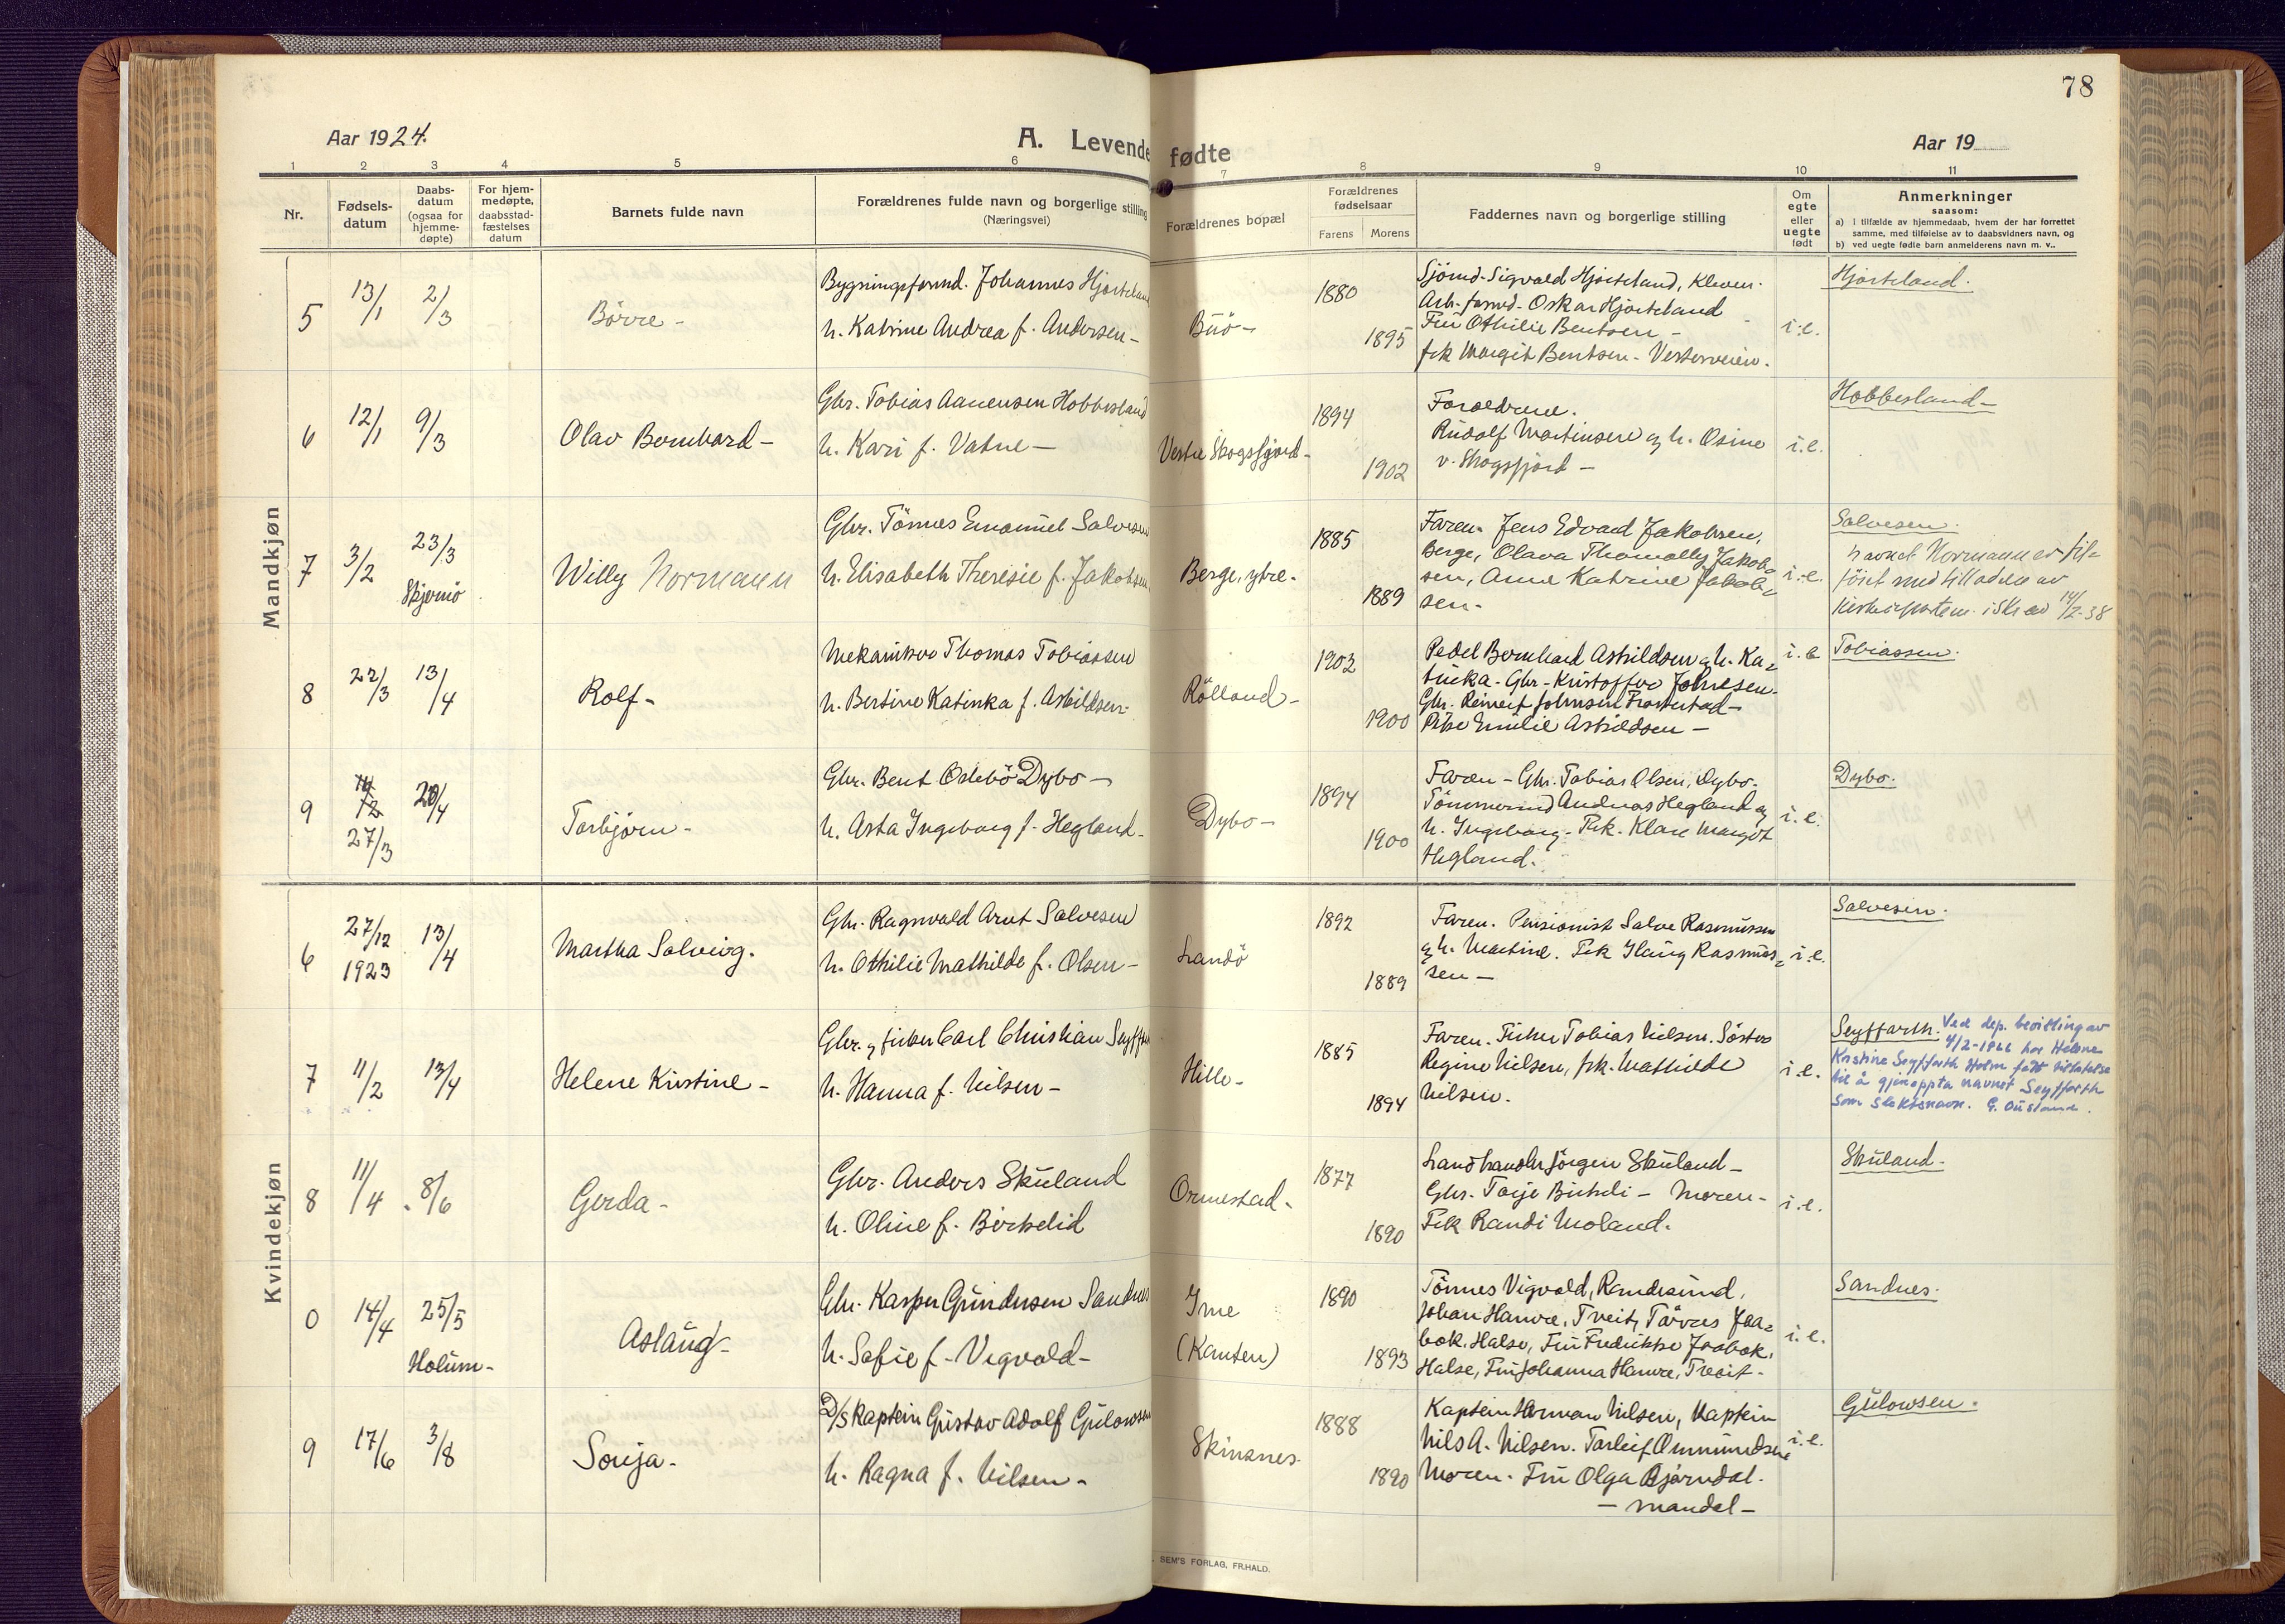 78
Aar 1924.
A. Levende fødte
Aar 19
1 2 3 4 5 6 7 8 9 10 11
Nr.
Fødsels-
datum
Daabs-
datum
(ogsaa for
hjemme-
døpte)
For hjem-
medøpte,
daabsstad-
fæstelses
datum
Barnets fulde navn
Forældrenes fulde navn og borgerlige stilling
(Næringsvei)
Forældrenes bopæl
Forældrenes
fødselsaar
Farens Morens
Faddernes navn og borgerlige stilling
Om
egte
eller
uegte
født
Anmerkninger
saasom:
a) i tilfælde av hjemmedaab, hvem der har forrettet
samme, med tilføielse av to daabsvidners navn, og
b) ved uegte fødte barn anmelderens navn m. v..
Mandkjøn
5
13/1
2/3
Børre -
Bygningsformd. Johannes Hjorteland
h. Katrine Andrea f. Andersen -
Buø -
1880
1895
Sjömd. Sigvald Hjorteland, Kleven.
Arb.-formd. Oskar Hjorteland
Fru Othilie Bentsen -
frk Margit Bentsen - Vesterveien.
i.e.
Hjorteland.
6
12/1
9/3
Olav Bernhard -
Gbr. Tobias Aanensen Hobbesland
h. Kari f. Vatne -
Vestre Skogsfjord -
1894
1902
Foreldrene.
Rudolf Martinsen og h. Osine
v. Skogsfjord -
i.e.
Hobbesland -
7
3/2
23/3
Skjernö
Willy Normann
Gbr. Tönnes Emanuel Salvesen
h. Elisabeth Theresie f. Jakobsen
Berge, ytre.
1885
1889
Faren. Jens Edvard Jakobsen,
Berge, Olava Thomally Jakob-
sen, Anne Katrine Jakob-
sen.
i.e.
Salvesen.
Navnet Normann er til-
föiet med tilladelse av
Kirkedepartem. i Skr. av 14/2-38
8
22/3
13/4
Rolf -
Mekaniker Thomas Tobiassen
h. Bertine Katinka f. Askildsen
Rölland -
1902
1900
Pedel Bernhard Askildsen og h. Ka-
tinka - Gbr. Kristoffer Johnsen.
Gbr. Reinert Johnsen Frøstestad -
Pike Emilie Askildsen -
i.e.
Tobiassen.
9
27/3
20/4
Torbjørn -
Gbr. Bent Odebö Dybo -
h. Asta Ingeborg f. Hegland -
Dybo -
1894
1900
Faren - Gbr. Tobias Olsen, Dybo.
Tömmermd Andreas Hegland og
h. Ingeborg. Frk. Klara Margot
Hegland.
i.e.
Dybo.
Kvindekjøn
6
27/12
1923
13/4
Martha Solveig.
Gbr. Ragnvald Arnt Salvesen
h. Othilie Mathilde f. Olsen -
Landö
1892
1889
Faren. Pensionist Salve Rasmussen
og h. Martine. Frk Haug Rasmus-
sen -
i.e.
Salvesen.
7
11/2
13/4
Helene Kristine -
Gbr. og fisker Carl Christian Seyffarth
h. Hanna f. Nilsen -
Hille -
1885
1894
Faren. Fisker Tobias Nilsen. Söster
Regine Nilsen, frk. Mathilde
Nilsen.
i.e.
Seyffarth. Ved dep. bevilling av
4/2-1966 har Helene
Kristine Seyffarth Holm fått tillatelse
til å gjenoppta navnet Seyffarth
som slektsnavn. G. Ousland.
8
11/4
8/6
Gerda -
Gbr. Anders Skuland
h. Oline f. Birkelid
Ormestad.
1877
1890
Landhandler Jörgen Skuland -
Gbr. Torje - Moren -
Frk Randi Moland.
i.e.
Skuland.
0
14/4
25/5
Holum -
Aslaug -
Gbr. Kasper Gundersen Sandnes
h. Sofie f. Vigvold -
Ime
(Kanten)
1890
1893
Tönnes Vigvold, Randesund,
Johan Hamre, Tveit, Tørres Jaa-
bok. Halse, Fru Fredrikke Jaabok,
Halse, Fru Johanna Hamre, Tveit -
i.e.
Sandnes.
9
17/6
3/8
Sonja -
D/S Kaptein Gustav Adolf Gulowsen
h. Ragna f. Nilsen -
Skinsnes.
1888
1890
Kaptein Herman Nilsen, Kaptein
Nils A. Nilsen. Torleif Ommundsen
Moren. Fru Olga Bjørndal.
- Mandal -
i.e.
Gulowsen.
SEM'S FORLAG, FR.HALD.